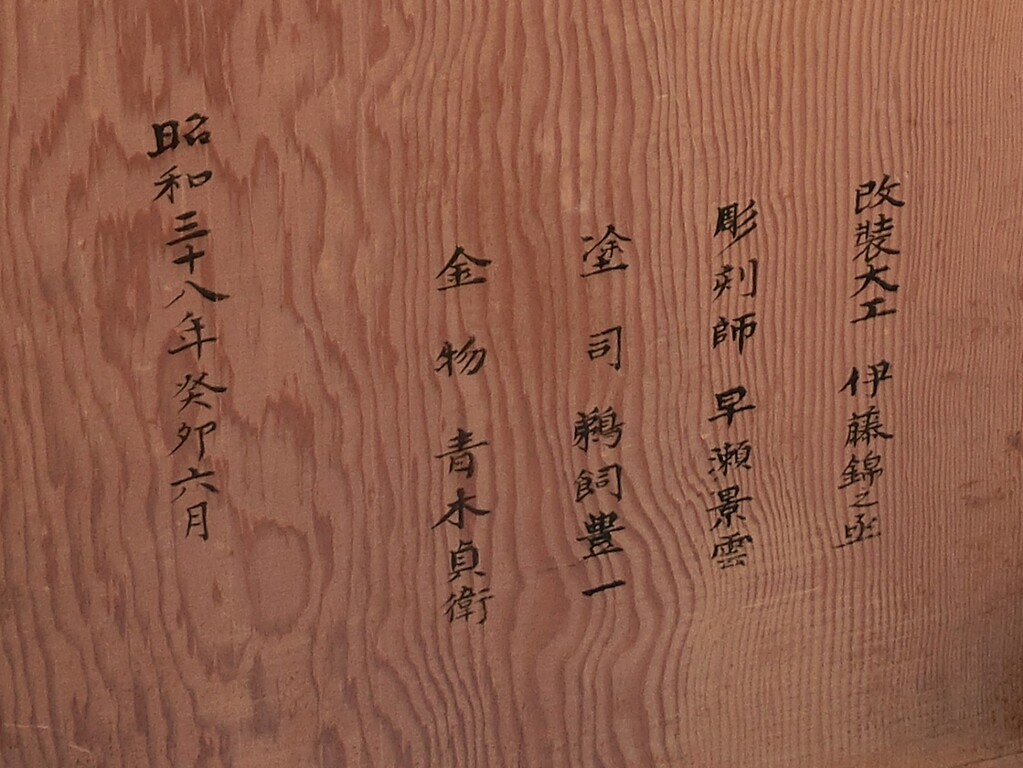 改装大工 伊藤錦之丞
彫刻師 早瀬景雲
塗司 鵜飼豊一
金物 青木貞衛
昭和三十八年癸卯六月